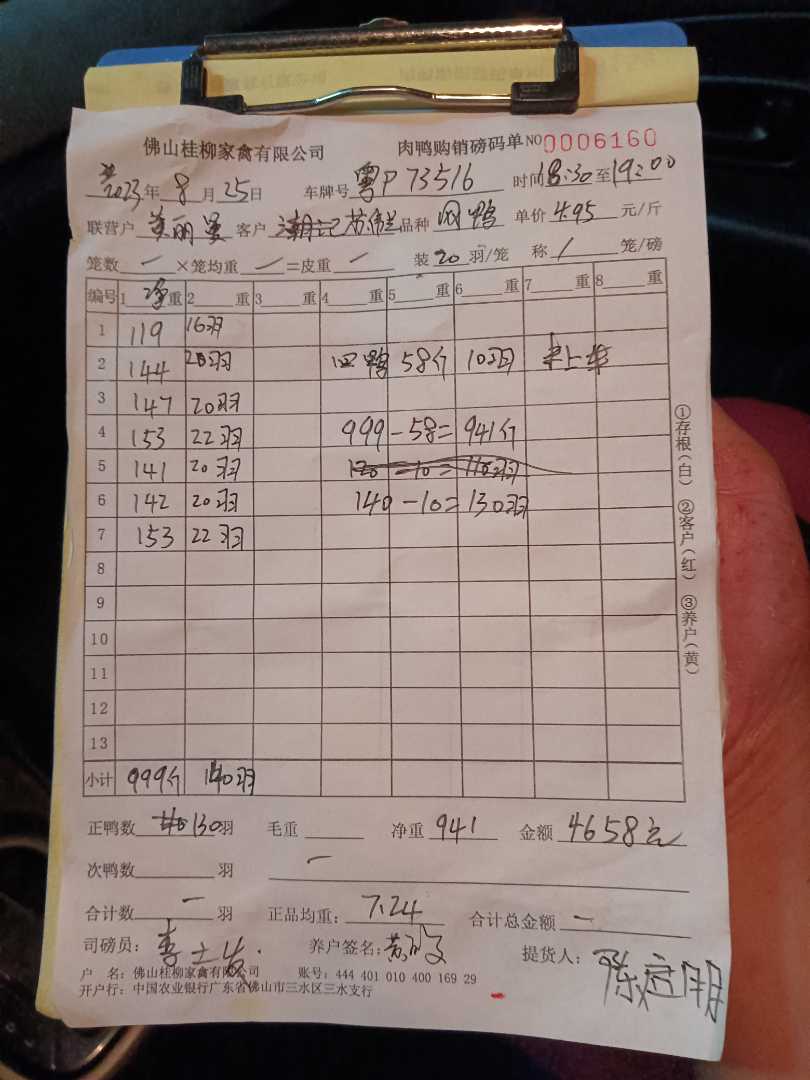 佛山桂柳家禽有限公司 肉鸭购销磅码单 NO 0006160
2023年 8月 25日 车牌号 粤P 73516 时间 18:30 至 19:00
联营户 丽 客户 潮记苏 品种 网鸭 单价 4.95 元/斤
笼数 一 ×笼均重 一 =皮重 一 装 20 羽/笼 称 / 笼/磅
编号 1 净 重 2 重 3 重 4 重 5 重 6 重 7 重 8 重
1 119 16羽
2 144 20羽 鸭 58斤 10羽 上车
3 147 20羽
4 153 22羽 999 - 58 = 941斤
5 141 20羽 120 - 10 = 110羽
6 142 20羽 140 - 10 = 130羽
7 153 22羽
8
9
10
11
12
13
小计 999斤 140羽
正鸭数 130羽 毛重 净重 941 金额 4658元
次鸭数 羽 一
合计数 一 羽 正品均重: 7.24 合计总金额 一
司磅员: 李 养户签名: 提货人: 陈
户 名: 佛山桂柳家禽有限公司 账号: 444 401 010 400 169 29
开户行: 中国农业银行广东省佛山市三水区三水支行
①存根(白) ②客户(红) ③养户(黄)